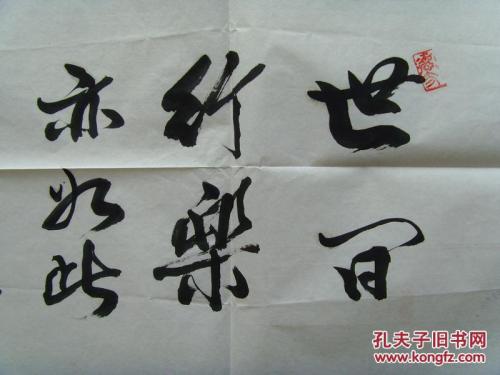 世间
行樂
亦如此
孔夫子旧书网
www.kongfz.com